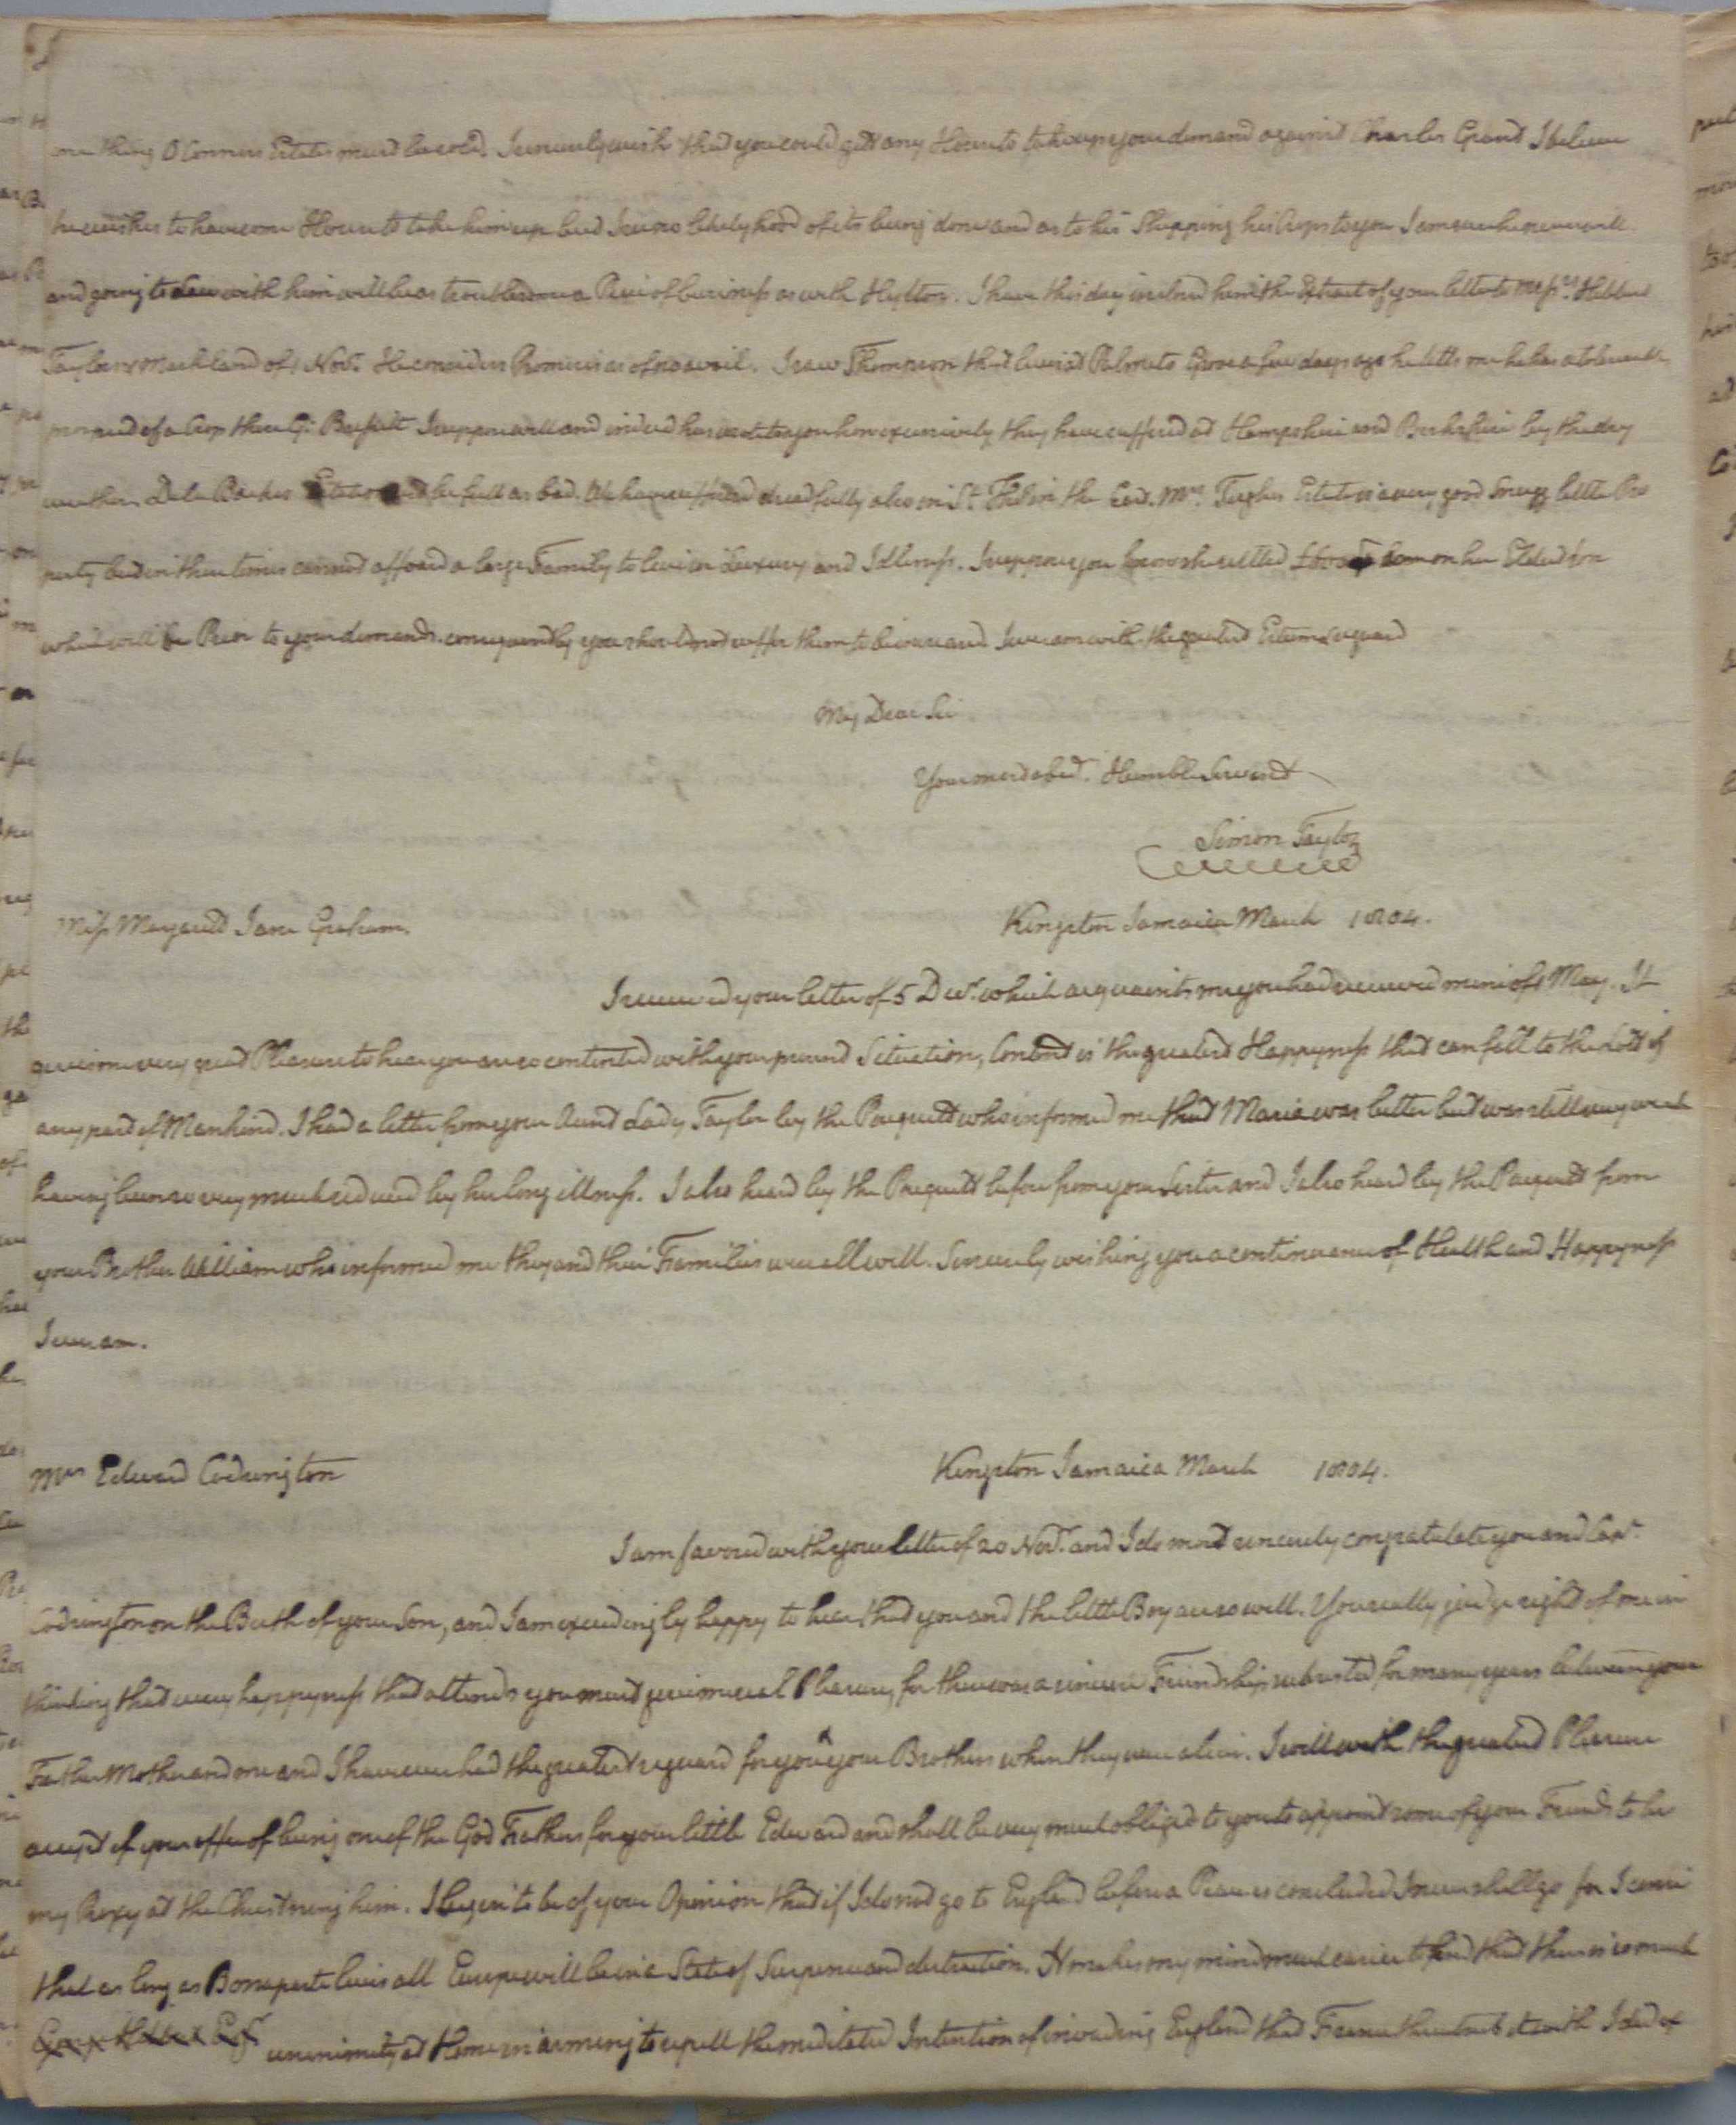 one thing O Connors Estates must be sold. I sincerely wish that you could gett any House to take up your demand against Charles Grant I believe
he wishes to have some House to take him up but I see no likelyhood of its being done and as to his Shipping his Crops to you I am sure he never will
and going to Law with him will be as troublesome a Piece of business as with Hylton. I have this day inclosed him the Extract of your letter to Messrs Hibbert
Taylor & Markland of 1 Novr. He considers Promises as of no avail. I saw Thompson that lives at Palmeto Grove a few days ago he tells me he has a tolerable
prospect of a Crop there Gi: Barfutt I suppose will and indeed has wrote to you how excessively they have suffered at Hampshire and Berkshire by the dry
weather. Dela Bodes Estate is full as bad. We have suffered dreadfully also in St. Thos. in the East. Mrs. Taylors Estate is a very good Snugg little Pro
perty but in these times cannot afford a large Family to live in Luxury and Idleness. I suppose you know she settled on her Eldest Son
which will be Prior to your demands. consequently you should not suffer them to live in and I ever am with the greatest Esteem & reguard
My Dear Sir
Your most obedt. Humble Servant
Simon Taylor
Miss Margarett Jane Graham. Kingston Jamaica March 1804.
I received your letter of 5 Decr. which acquaints me you had received mine of 1 May. It
gives me very great Pleasure to hear you are so contented with your present Situation, Content is the greatest Happyness that can fall to the Lott of
any part of Mankind. I had a letter from your Aunt Lady Taylor by the Pacquett who informed me that Maria was better but was still very weak
having been so very much reduced by her long illness. I also heard by the Pacquett before from your Sister and I also heard by the Pacquett from
your Brother William who informed me they and their Families were all well. Sincerely wishing you a continuance of Health and Happyness
I ever am.
Mrs Edward Codrington Kingston Jamaica March 1804.
I am favored with your letter of 20 Novr. and I do most sincerely congratulate you and Capt.
Codrington on the Birth of your Son, and I am exceedingly happy to hear that you and the little Boy are so well. You really judge right of me in
thinking that every happyness that attends you must give me real Pleasure, for there was a sincere Friendship subsisted for many years between your
Father Mother and me and I have ever had the greatest reguard for you & your Brothers when they were alive. I will with the greatest Pleasure
accept of your offer of being one of the God Fathers for your little Edward and shall be very much obliged to you to appoint some of your Friends to be
my Proxy at the Christning him. I begin to be of your Opinion that if I do not go to England before a Peace is concluded I never shall go for I conceive
that as long as Bonaparte lives all Europe will be in a State of Suspence and distraction. It makes my mind much easier to find that there is so much
unanimity at Home in arming to repell the meditated Intention of invading England that France threatens it with I dread